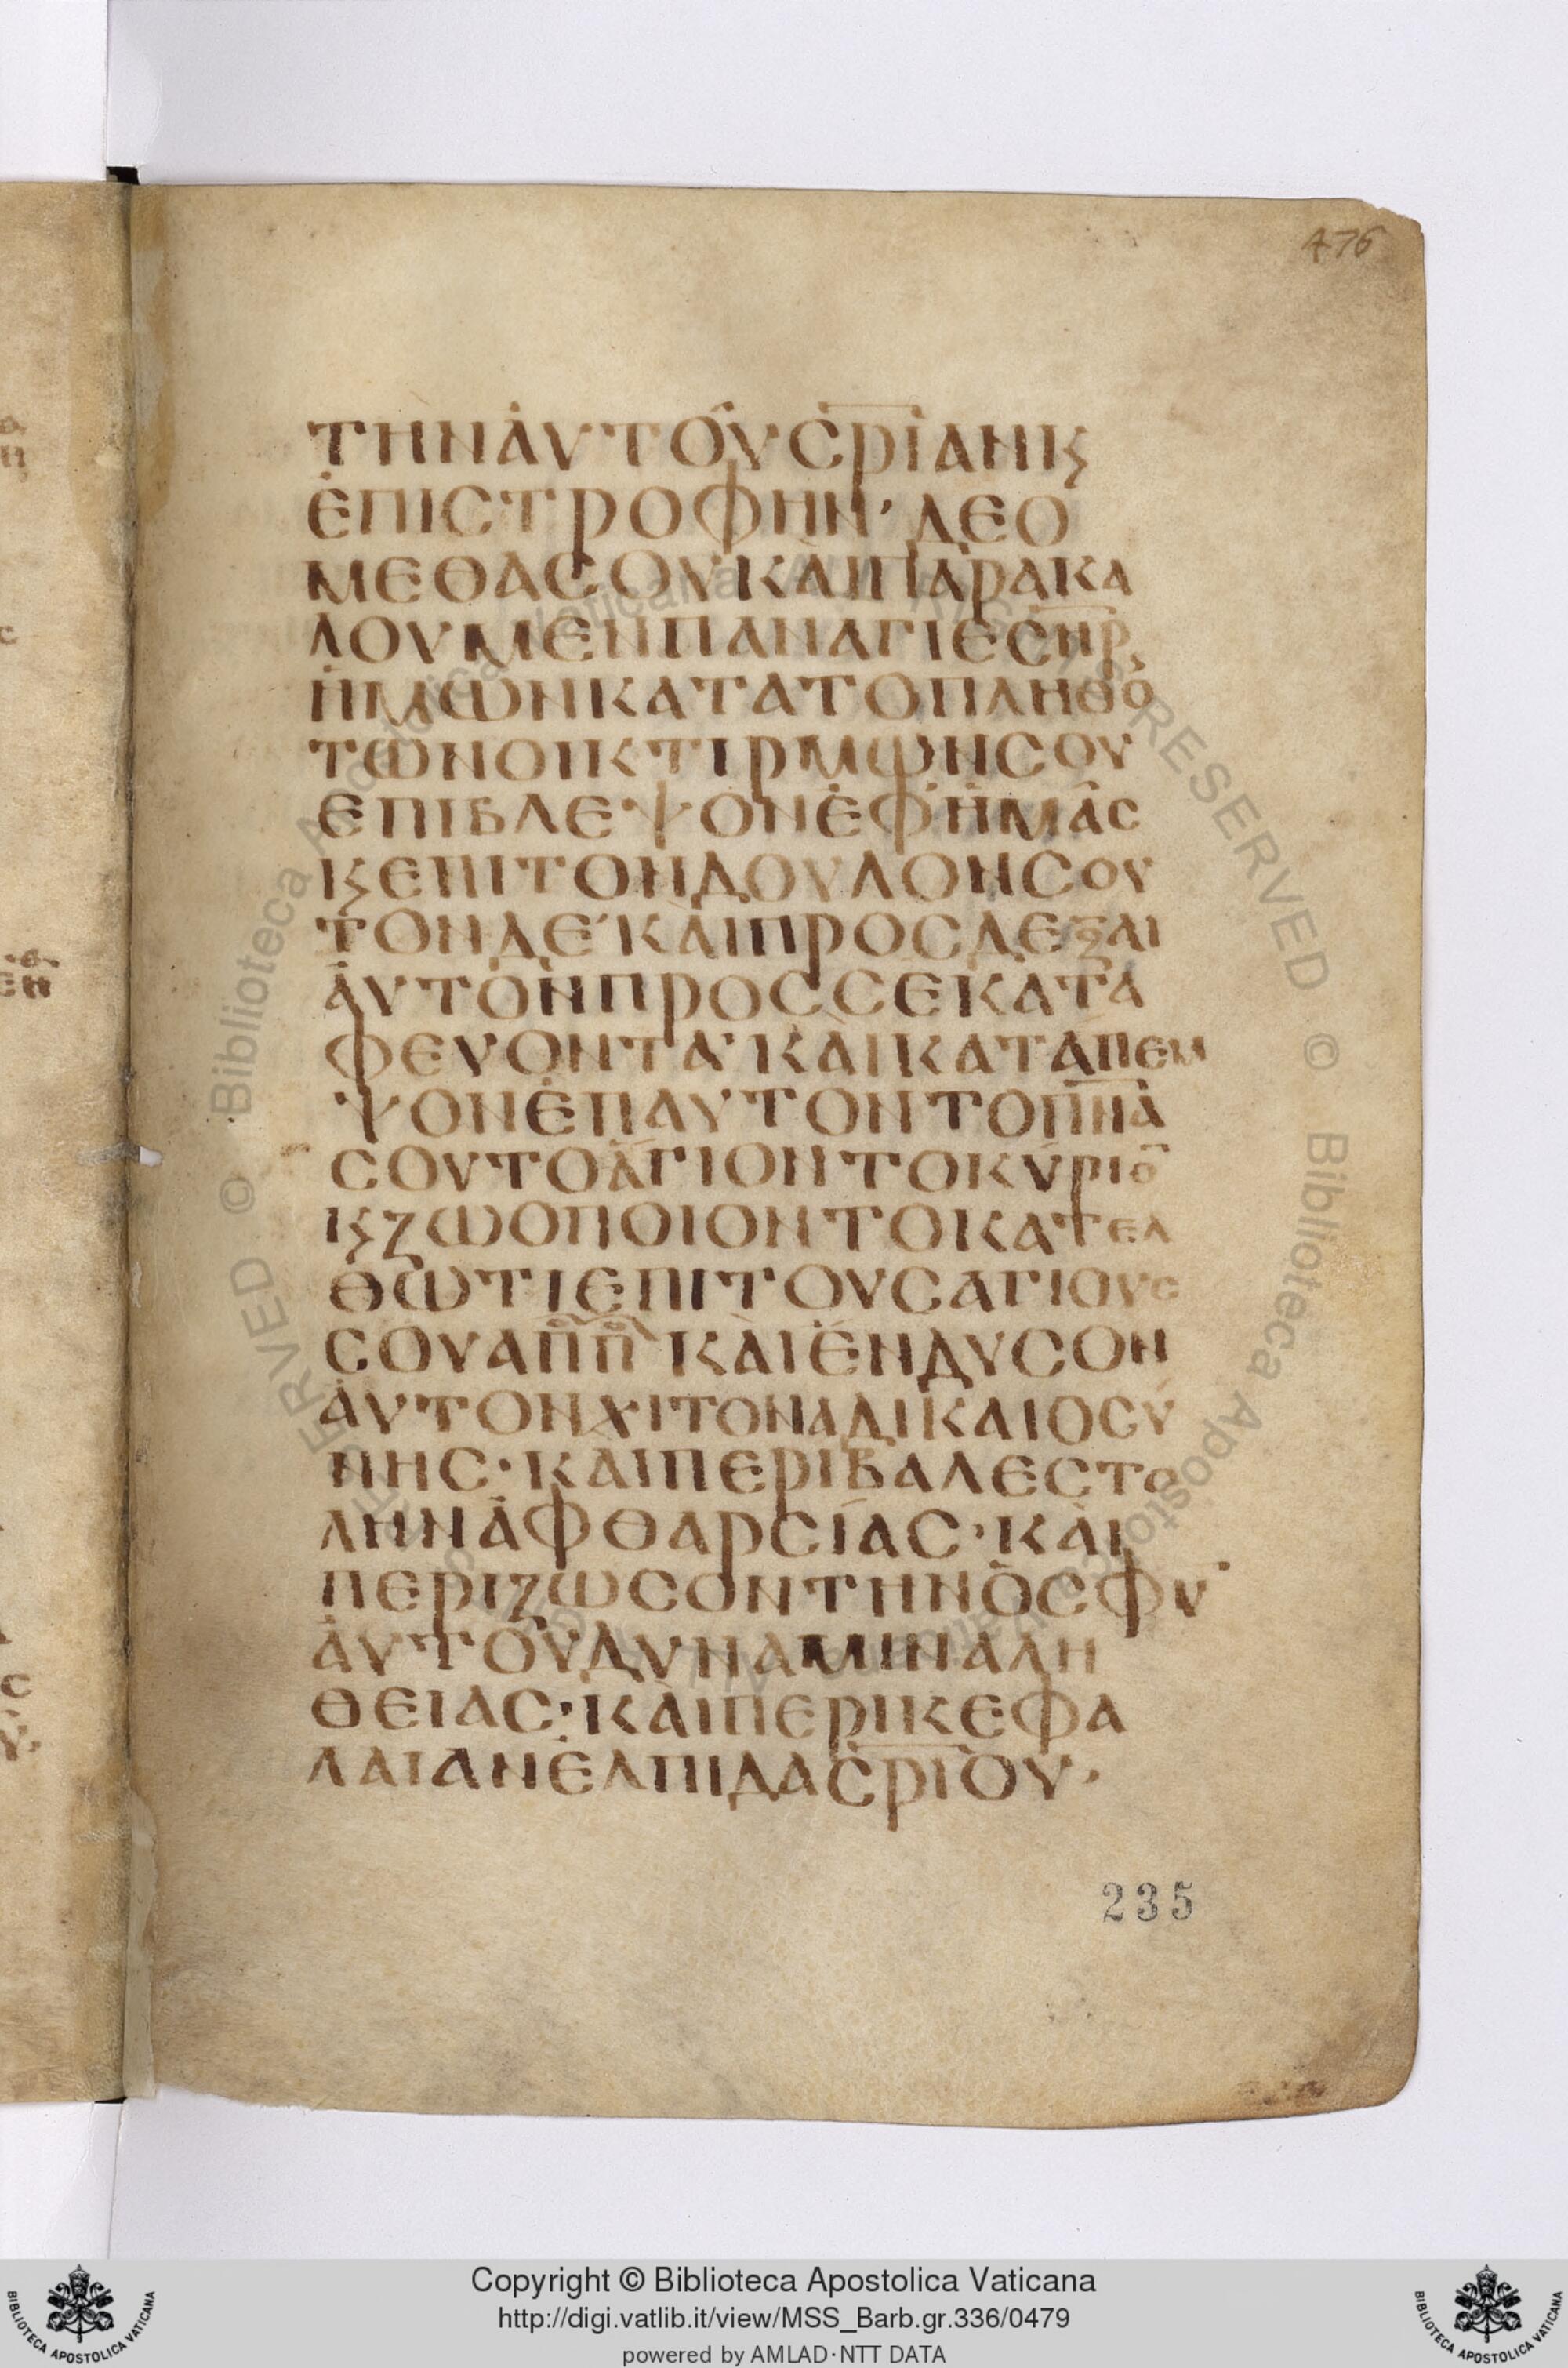 476
ΤΗΝΑΥΤΟΥϹΡΙΑΝΚϛ
ΕΠΙϹΤΡΟΦΗΝ· ΔΕΟ
ΜΕΘΑϹΟΥΚΑΙΠΑΡΑΚΑ
ΛΟΥΜΕΝΠΑΝΑΓΙΕϹΗΡ
ΗΜΩΝΚΑΤΑΤΟΠΛΗΘΟ
ΤΩΝΟΙΚΤΙΡΜΩΝϹΟΥ
ΕΠΙΒΛΕΨΟΝΕΦΗΜΑϹ
ΚϛΕΠΙΤΟΝΔΟΥΛΟΝϹΟΥ
ΤΟΝΔΕ ΚΑΙΠΡΟϹΔΕΞΑΙ
ΑΥΤΟΝΠΡΟϹϹΕΚΑΤΑ
ΦΕΥΟΝΤΑ ΚΑΙΚΑΤΑΠΕΜ
ΨΟΝΕΠΑΥΤΟΝΤΟΠΝΑ
ϹΟΥΤΟΑΓΙΟΝΤΟΚΥΡΙΟ
ΚϛΖΩΟΠΟΙΟΝΤΟΚΑΤΕΛ
ΘΩΤΙΕΠΙΤΟΥϹΑΓΙΟΥϹ
ϹΟΥΑΠΠ ΚΑΙΕΝΔΥϹΟΝ
ΑΥΤΟΝΧΙΤΟΝΑΔΙΚΑΙΟϹΥ
ΝΗϹ· ΚΑΙΠΕΡΙΒΑΛΕϹΤΟ
ΛΗΝΑΦΘΑΡϹΙΑϹ· ΚΑΙ
ΠΕΡΙΖΩϹΟΝΤΗΝΟϹΦΥ
ΑΥΤΟΥΔΥΝΑΜΙΝΑΛΗ
ΘΕΙΑϹ· ΚΑΙΠΕΡΙΚΕΦΑ
ΛΑΙΑΝΕΛΠΙΔΑϹΡΙΟΥ·
235
Copyright © Biblioteca Apostolica Vaticana
http://digi.vatlib.it/view/MSS_Barb.gr.336/0479
powered by AMLAD·NTT DATA
BIBLIOTECA APOSTOLICA VATICANA
BIBLIOTECA APOSTOLICA VATICANA